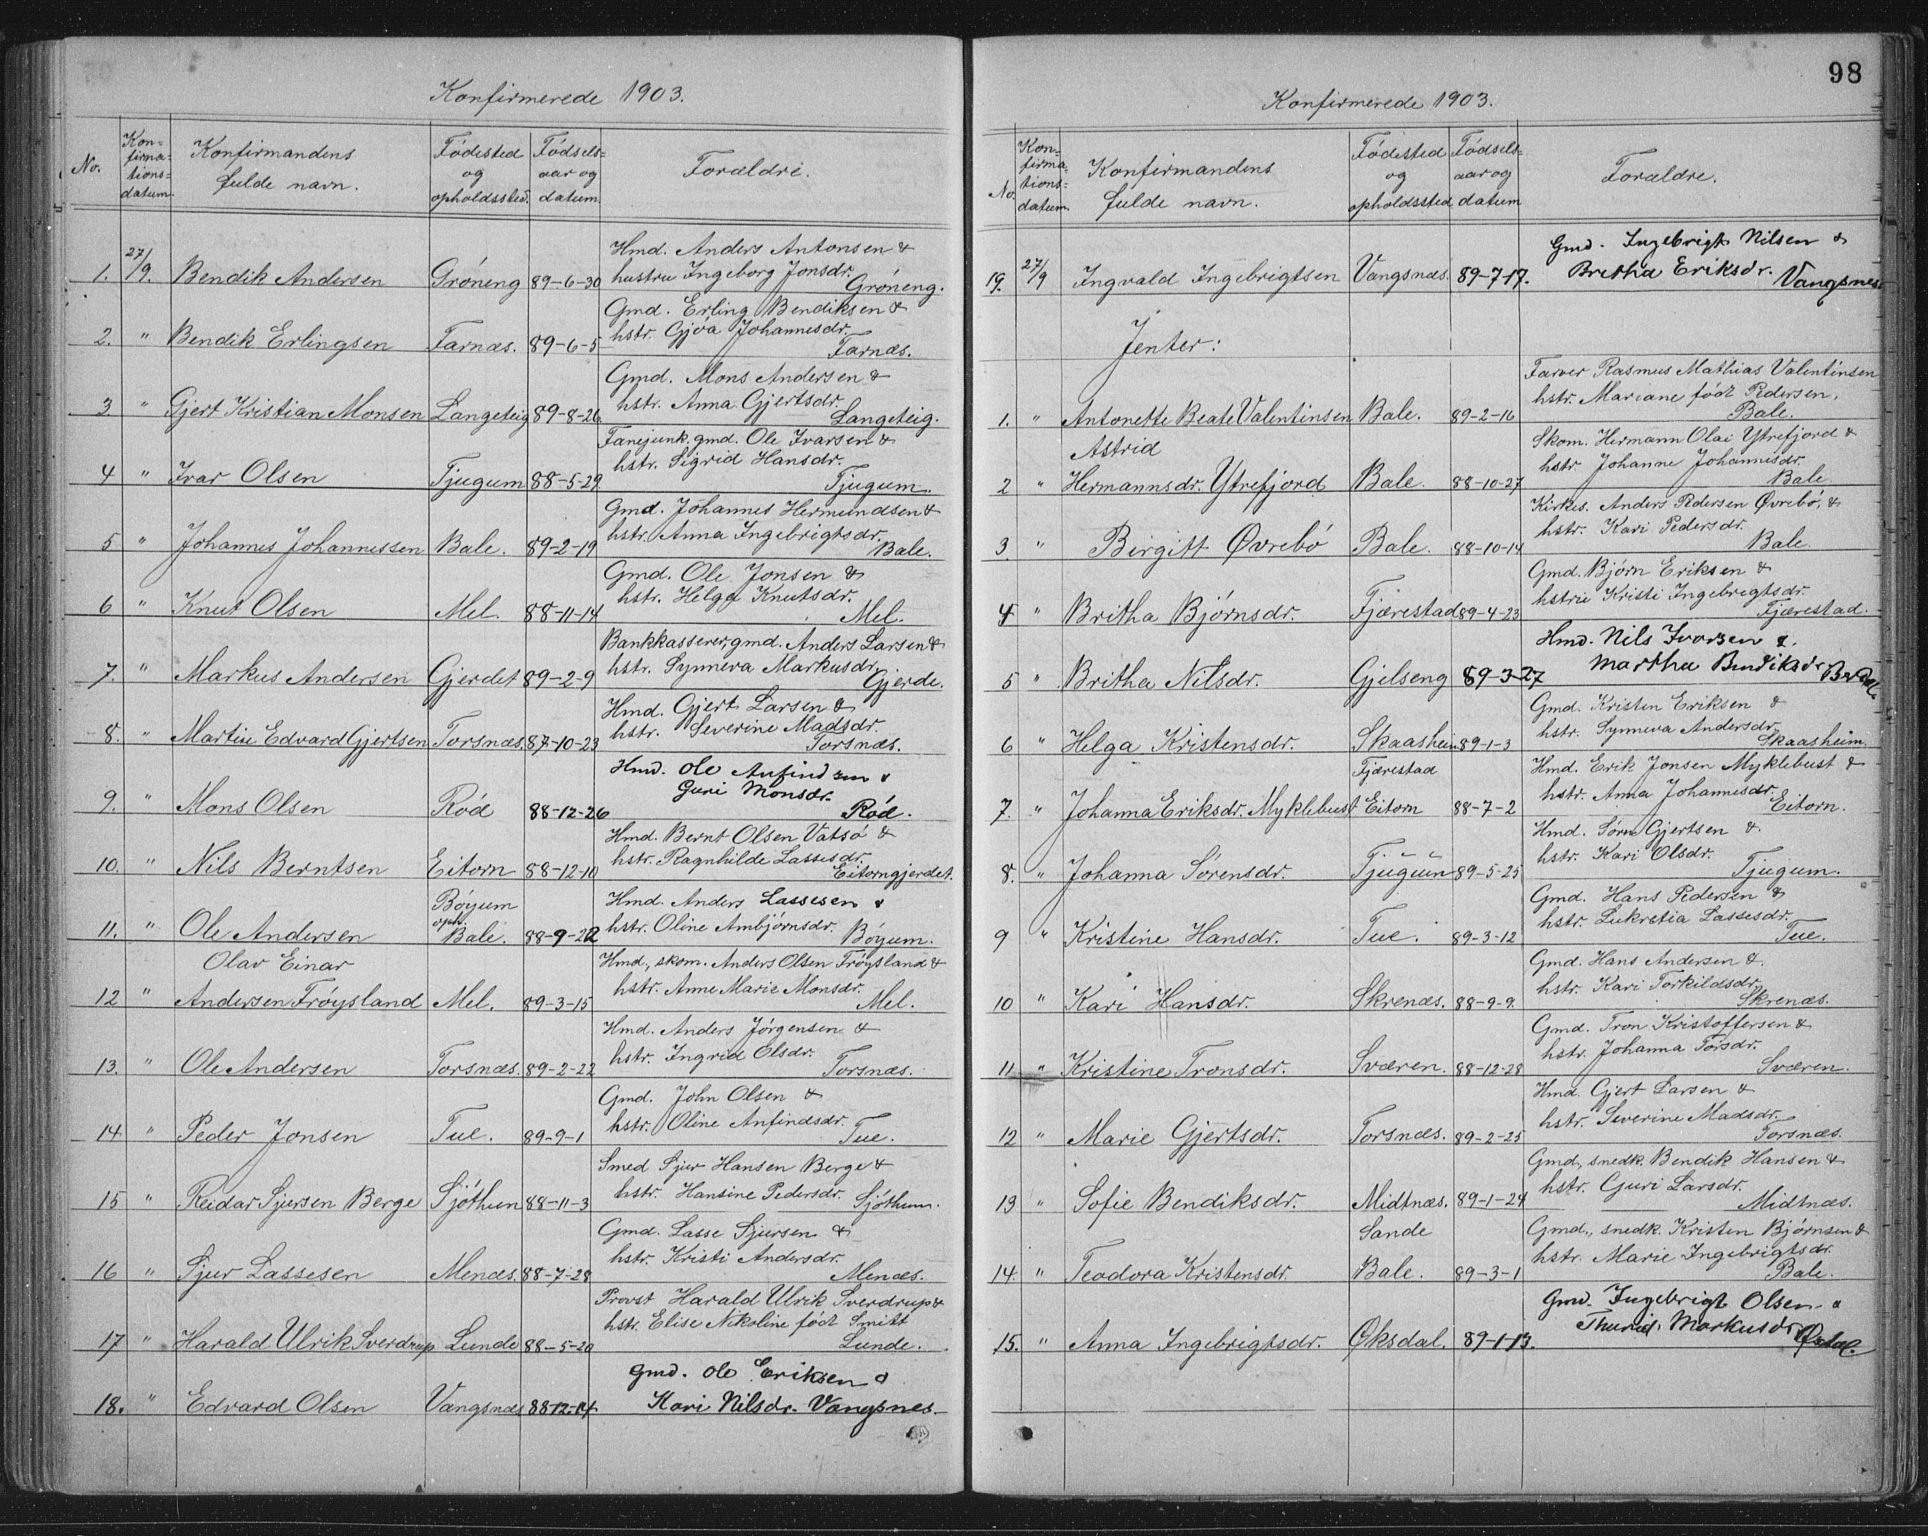 Konfirmerede 1903.
No. Kon-firma-tions-datum. Konfirmandens fulde navn. Fødested og opholdssted. Fødsels-aar og datum. Forældre.
Hmd. Anders Antonsen &
1. 27/9. Bendik Andersen Grøneng 89-6-30 hustru Ingeborg Jonsdr. Grøneng.
Gmd. Erling Bendiksen &
2. " Bendik Erlingsen Farnæs. 89-6-5 hstr. Gjøa Johannesdr. Farnæs.
Gmd. Mons Andersen &
3 " Gjert Kristian Monsen Langeteig 89-8-26 hstr. Anna Gjertsdr. Langeteig.
Fanejunk, gmd. Ole Ivarsen &
4 " Ivar Olsen Tjugum 88-5-29 hstr. Sigrid Hansdr. Tjugum.
Gmd. Johannes Hermundsen &
5 " Johannes Johannessen Bale. 89-2-19 hstr. Anna Ingebrigtsdr. Bale.
Gmd. Ole Jonsen &
6 " Knut Olsen Mel. 88-11-14 hstr. Helga Knutsdr. Mel.
Bankkasserer, gmd. Anders Larsen &
7. " Markus Andersen Gjerdet 89-2-9 hstr. Synneva Markusdr. Gjerde.
Hmd. Gjert Larsen &
8. " Martin Edvard Gjertsen Torsnæs. 87-10-23 hstr. Severine Madsdr. Torsnæs.
Hmd. Ole Anfindsen &
9. " Mons Olsen Rød 88-12-26 Guri Monsdr. Rød.
Hmd. Bernt Olsen Vatsø &
10. " Nils Berntsen Eitorn 88-12-10 hstr. Ragnhilde Lassesdr. Eitorngjerdet.
Bøyum Hmd. Anders Lassesen &
11. " Ole Andersen oph. Bale. 88-9-22 hstr. Oline Ambjørnsdr. Bøyum.
Olav Einar Hmd., skom. Anders Olsen Frøysland &
12 " Andersen Frøysland Mel. 89-3-15 hstr. Anne Marie Monsdr. Mel.
Hmd. Anders Jørgensen &
13. " Ole Andersen Torsnæs. 89-2-22 hstr. Ingrid Olsdr. Torsnæs.
Gmd. John Olsen &
14 " Peder Jonsen Tue. 89-9-1 hstr. Oline Anfindsdr. Tue.
Smed Sjur Hansen Berge &
15 " Reidar Sjursen Berge Sjøthun 88-11-3 hstr. Hansine Pedersdr. Sjøthun.
Gmd. Lasse Sjursen &
16 " Sjur Lassesen Menæs. 88-7-28 hstr. Kristi Andersdr. Menæs.
Provst Harald Ulrik Sverdrup &
17 " Harald Ulrik Sverdrup Lunde 88-5-20 hstr. Elise Nikoline født Smitt Lunde.
Gmd. Ole Eriksen &
18. " Edvard Olsen Vangsnæs 88-12-14. Kari Nilsdr. Vangsnes.
98
Konfirmerede 1903.
No. Kon-firma-tions-datum. Konfirmandens fulde navn. Fødested og opholdssted Fødsels-aar og datum Forældre.
Gmd. Ingebrigt Nilsen &
19. 27/9 Ingvald Ingebrigtsen Vangsnæs. 89-7-17. Britha Eriksdr. Vangsnes
Jenter:
Farver Rasmus Mathias Valentinsen
hstr. Mariane født Pedersen,
1. " Antonette Beate Valentinsen Bale. 89-2-16 Bale.
Astrid Skom. Hermann Olai Ytrefjord &
hstr. Johanne Johannisdr.
2 " Hermannsdr. Ytrefjord Bale. 88-10-27 Bale
Kirkes. Anders Pedersen Øvrebø, &
hstr. Kari Pedersdr.
3 " Birgitt Øvrebø Bale. 88-10-14 Bale.
Gmd. Bjørn Eriksen &
4 " Britha Bjørnsdr. Fjærestad 89-4-23 hstru Kristi Ingebrigtsdr. Fjærestad.
Hmd. Nils Ivarsen &
5 " Britha Nilsdr. Gjelseng 89-3-27 Martha Bendiksdr.
Gmd. Kristen Eriksen &
6 " Helga Kristensdr. Skaasheim 89-1-3 hstr. Synneva Andersdr. Skaasheim.
Fjærestad Hmd. Erik Jonsen Myklebust &
7. " Johanna Eriksdr. Myklebust Eitorn 88-7-2 hstr. Anna Johannesdr. Eitorn.
Hmd. Sørn Gjertsen &
8. " Johanna Sørensdr. Tjugum 89-5-25 hstr. Kari Olsdr. Tjugum.
Gmd. Hans Pedersen &
9 " Kristine Hansdr. Tue. 89-3-12 hstr. Lukretia Lassesdr. Tue.
Gmd. Hans Andersen &
10 " Kari Hansdr. Skrenæs. 88-9-9. hstr. Kari Torkildsdr. Skrenæs.
Gmd. Tron Kristoffersen &
11 " Kristine Tronsdr. Sværen. 88-12-28 hstr. Johanna Torsdr. Sværen.
Hmd. Gjert Larsen &
12 " Marie Gjertsdr. Torsnæs. 89-2-25 hstr. Severine Madsdr. Torsnæs.
Gmd., snedk. Bendik Hansen &
13 " Sofie Bendiksdr. Midtnæs. 89-1-24 hstr. Guri Larsdr. Midtnæs.
Sande Gmd., snedk. Kristen Bjørnsen &
14. " Teodora Kristensdr. Bale. 89-3-1 hstr. Marie Ingebrigtsdr. Bale.
Gmd. Ingebrigt Olsen &
15. " Anna Ingebrigtsdr. Øksdal. 89-1-13. Thurid Markusdr